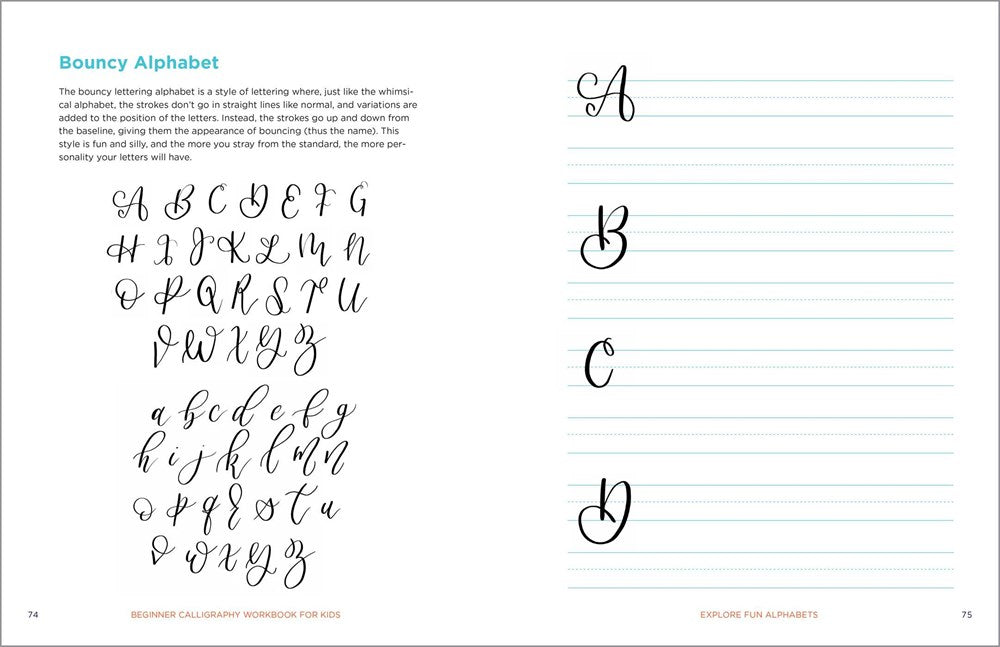 Bouncy Alphabet
The bouncy lettering alphabet is a style of lettering where, just like the whimsi-
cal alphabet, the strokes don't go in straight lines like normal, and variations are
added to the position of the letters. Instead, the strokes go up and down from
the baseline, giving them the appearance of bouncing (thus the name). This
style is fun and silly, and the more you stray from the standard, the more per-
sonality your letters will have.
A B C D E F G
H I J K L M N
O P Q R S T U
V W X Y Z
a b c d e f g
h i j k l m n
o p q r s t u
v w x y z
74 BEGINNER CALLIGRAPHY WORKBOOK FOR KIDS
A
B
C
D
EXPLORE FUN ALPHABETS 75